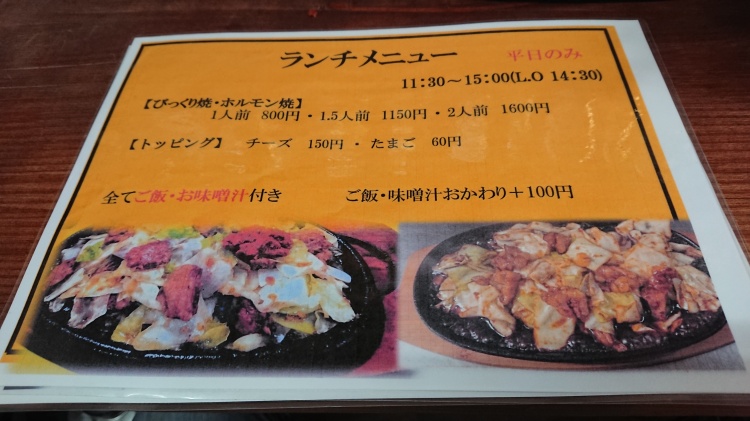 ランチメニュー 平日のみ
11:30～15:00(L.O 14:30)
【びっくり焼・ホルモン焼】
1人前 800円・1.5人前 1150円・2人前 1600円
【トッピング】 チーズ 150円・たまご 60円
全てご飯・お味噌汁付き ご飯・味噌汁おかわり＋100円